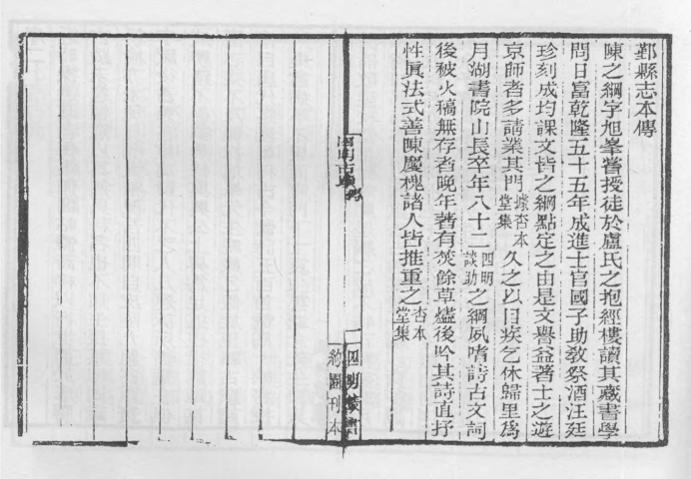 鄞縣志本傳
陳之綱字旭峯嘗授徒於盧氏之抱經樓讀其藏書學
問日富乾隆五十五年成進士官國子助敎祭酒汪廷
珍刻成均課文皆之綱點定之由是文譽益著士之遊
京師者多請業其門蝶杏本堂集久之以目疾乞休歸里爲
月湖書院山長卒年八十二四明談助之綱夙嗜詩古文詞
後被火稿無存者晚年著有焚餘草燼後吟其詩直抒
性眞法式善陳慶槐諸人皆推重之杏本堂集
四明
四明叢書
約園刊本